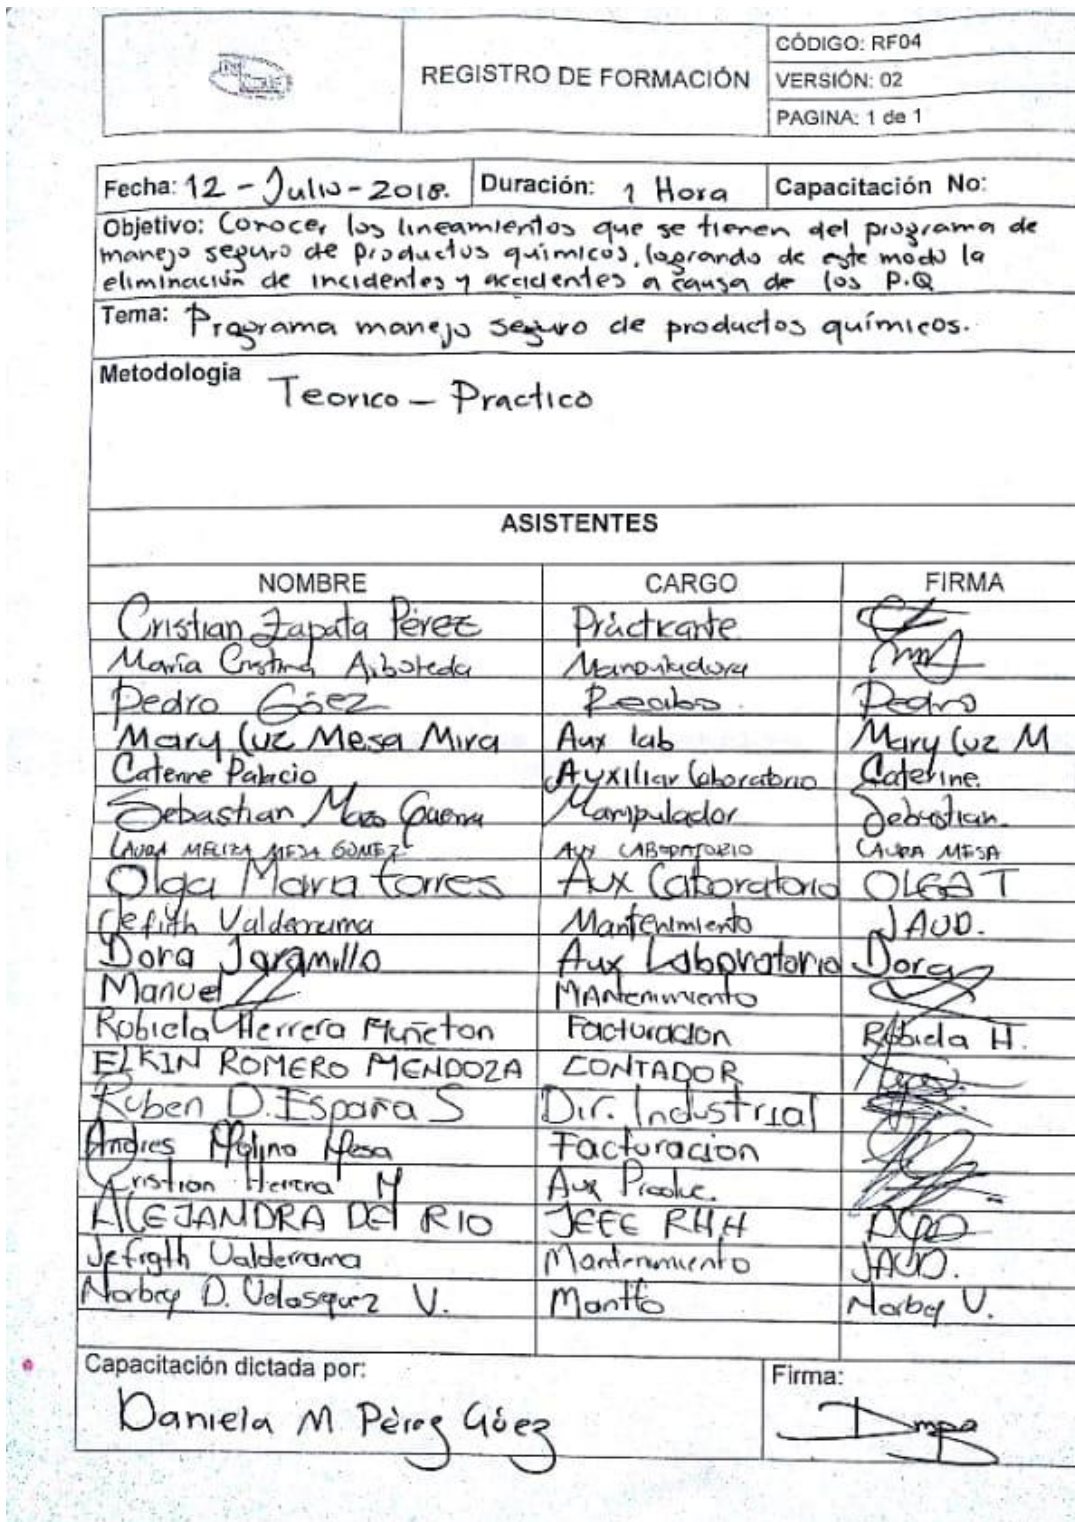 REGISTRO DE FORMACIÓN
CÓDIGO: RF04
VERSIÓN: 02
PAGINA: 1 de 1
Fecha: 12 - Julio - 2018. Duración: 1 Hora Capacitación No:
Objetivo: Conocer los lineamientos que se tienen del programa de
manejo seguro de productos químicos, logrando de este modo la
eliminación de incidentes y accidentes a causa de los P.Q
Tema: Programa manejo seguro de productos químicos.
Metodologia Teorico - Practico
ASISTENTES
NOMBRE CARGO FIRMA
Cristian Zapata Pérez Prácticante
María Cristina Arboleda
Pedro Góez Recibo. Pedro
Mary Luz Mesa Mira Aux lab Mary Luz M
Palacio Auxiliar laboratorio Caterine.
Sebastian Mazo Guerra Manipulador Sebastian.
LAURA MELIZA MESA GOMEZ AUX LABORATORIO LAURA MESA
Olga Maria torres Aux Laboratorio OLGA T
Valderrama Mantenimiento JAVD.
Dora Jaramillo Aux Laboratorio Dora
Manuel Mantenimiento
Rubiela Herrera Muñeton Facturacion Rubiela H.
ELKIN ROMERO MENDOZA CONTADOR
Ruben D. España S Dir. Industrial
Andres Molina Mesa Facturacion
Cristian Herrera M Aux Produc.
ALEJANDRA DEL RIO JEFE RHH
Valderrama Mantenimiento JAVD.
Norbey D. Velasquez V. Mantto Norbey V.
Capacitación dictada por: Firma:
Daniela M Pérez Góez Dmpg